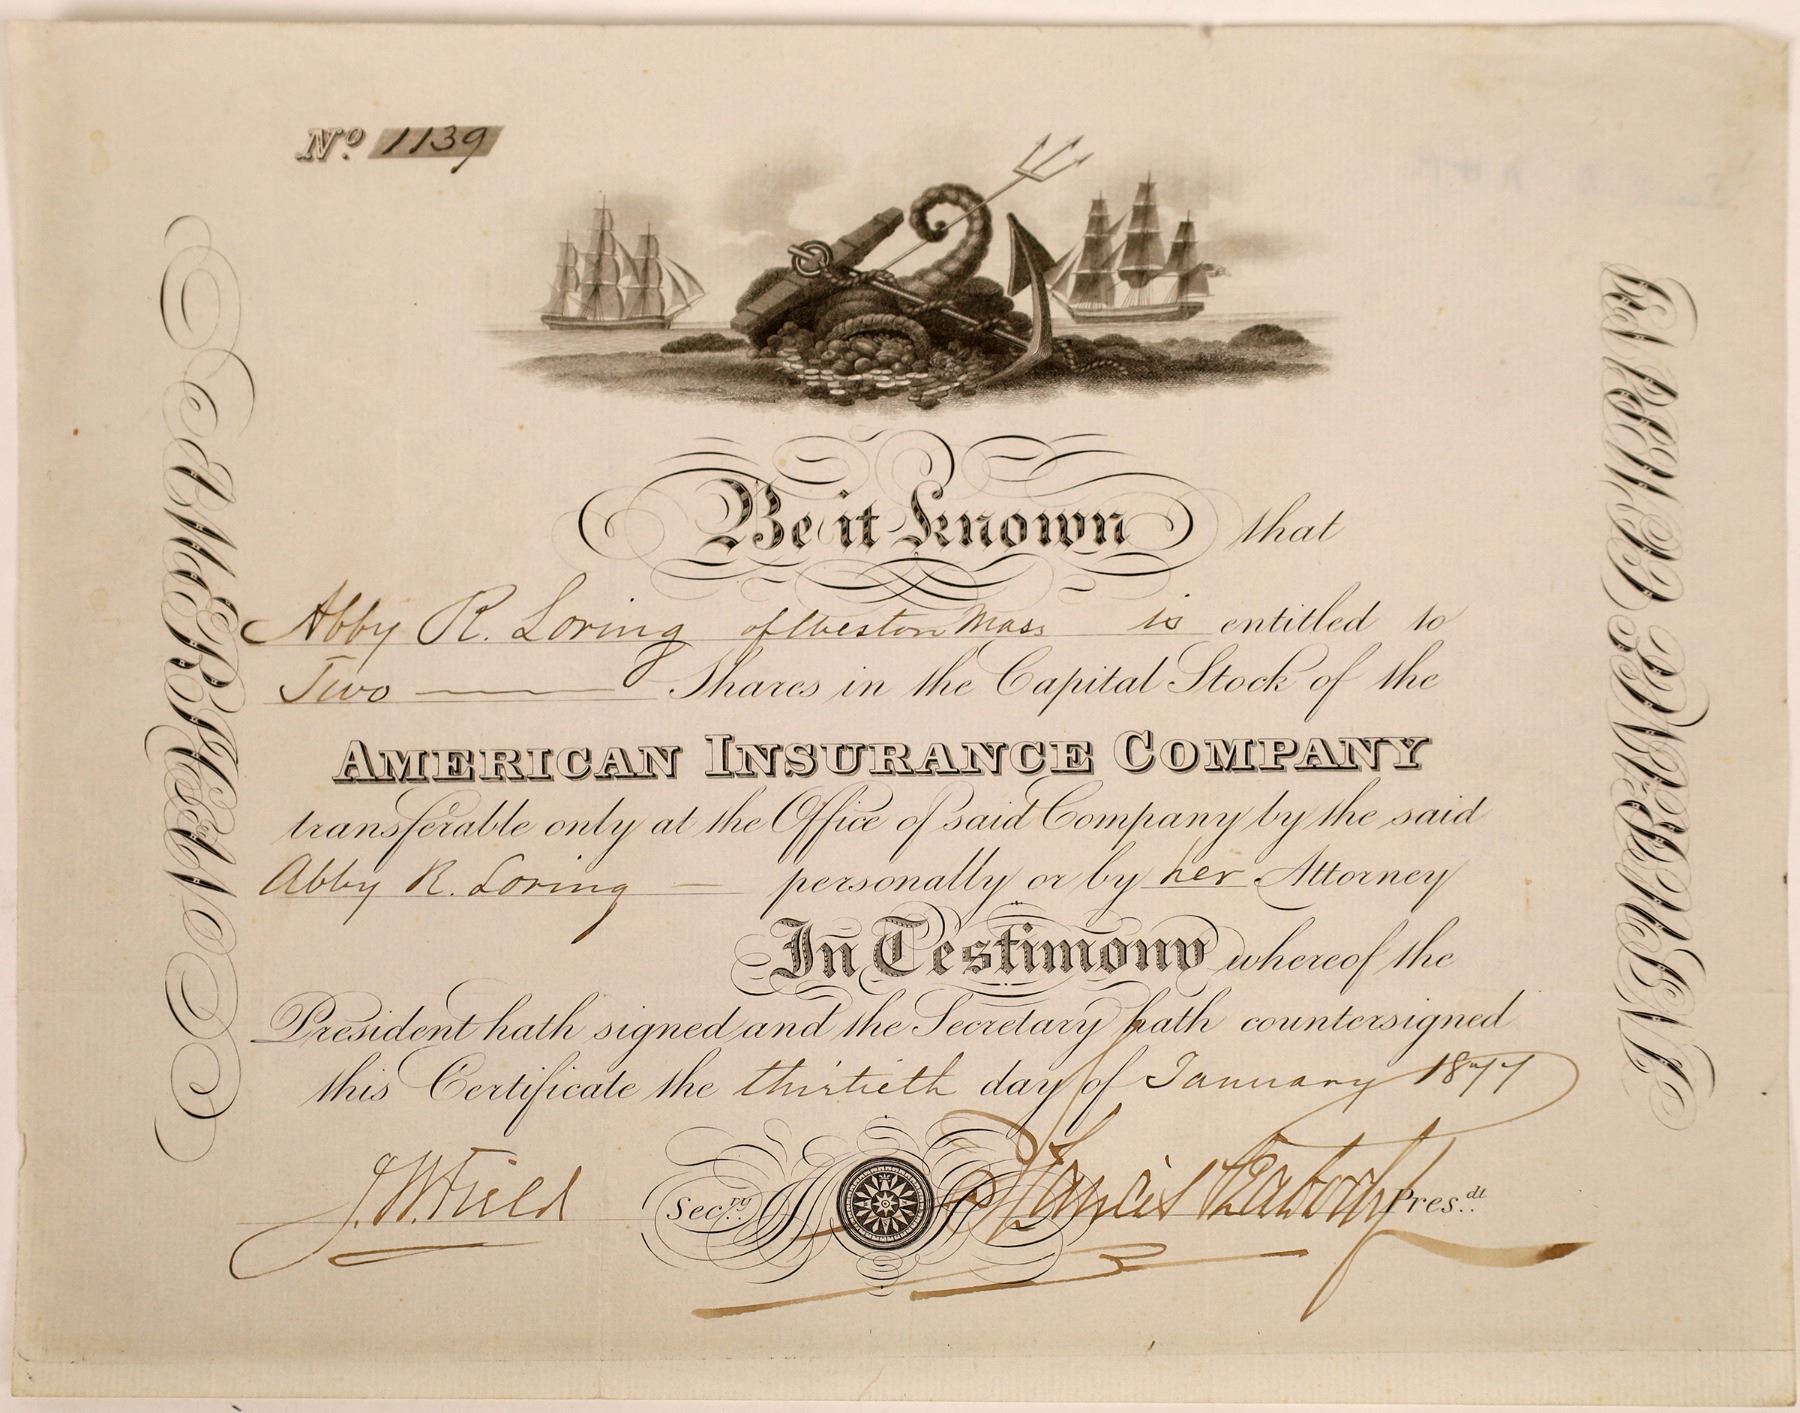 No. 1139
Be it known that
Abby R. Loring of Weston Mass is entitled to
Two Shares in the Capital Stock of the
AMERICAN INSURANCE COMPANY
transferable only at the Office of said Company by the said
Abby R. Loring personally or by her Attorney
In Testimony whereof the
President hath signed and the Secretary hath countersigned
this Certificate the thirtieth day of January 1877
J. W. Field Secry. Francis Peabody Presdt.
AMERICAN